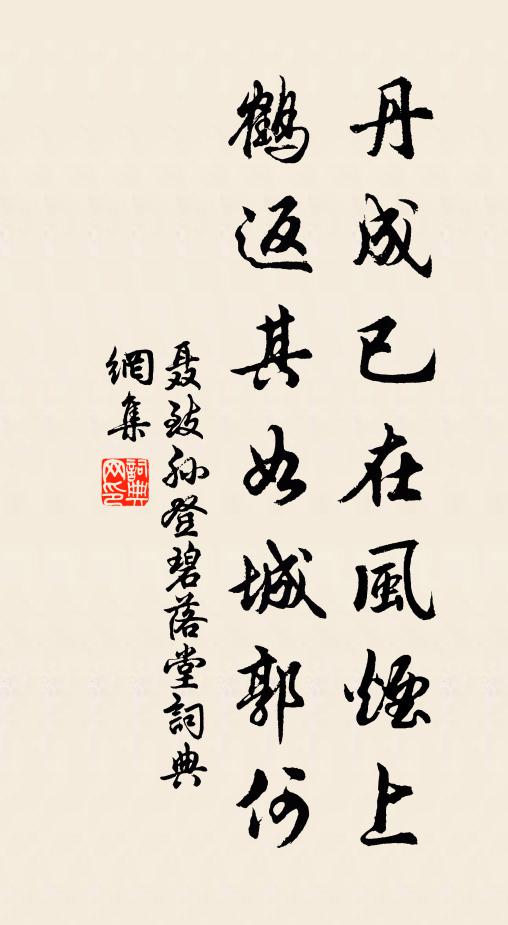 丹成已在風煙上
鶴返其如城郭何
聂致孙登碧落堂詞典
網集
詞典
网印